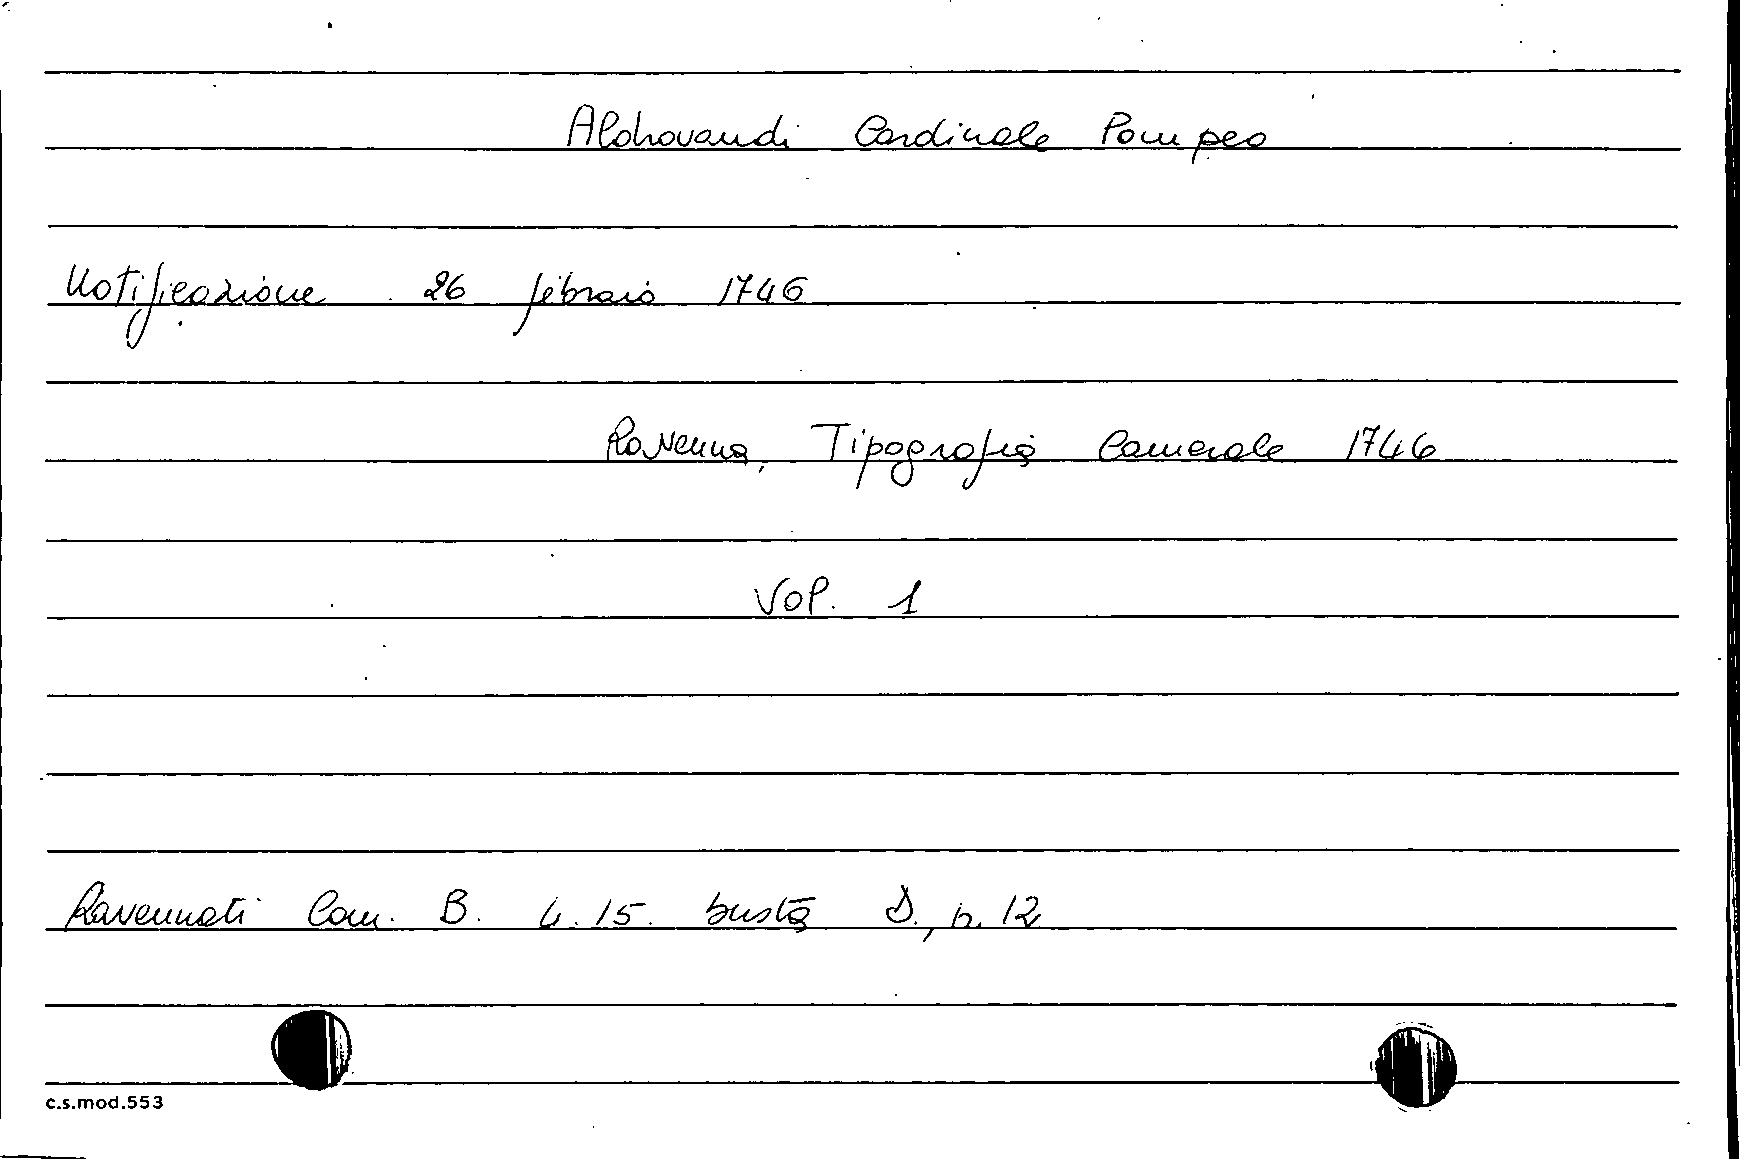 Aldrovandi Cardinale Pompeo
Notificazione 26 febraio 1746
Ravenna, Tipografia Camerale 1746
Vol. 1
Ravennati Com. B. 4. 15. busta D., n. 12
c.s.mod.553